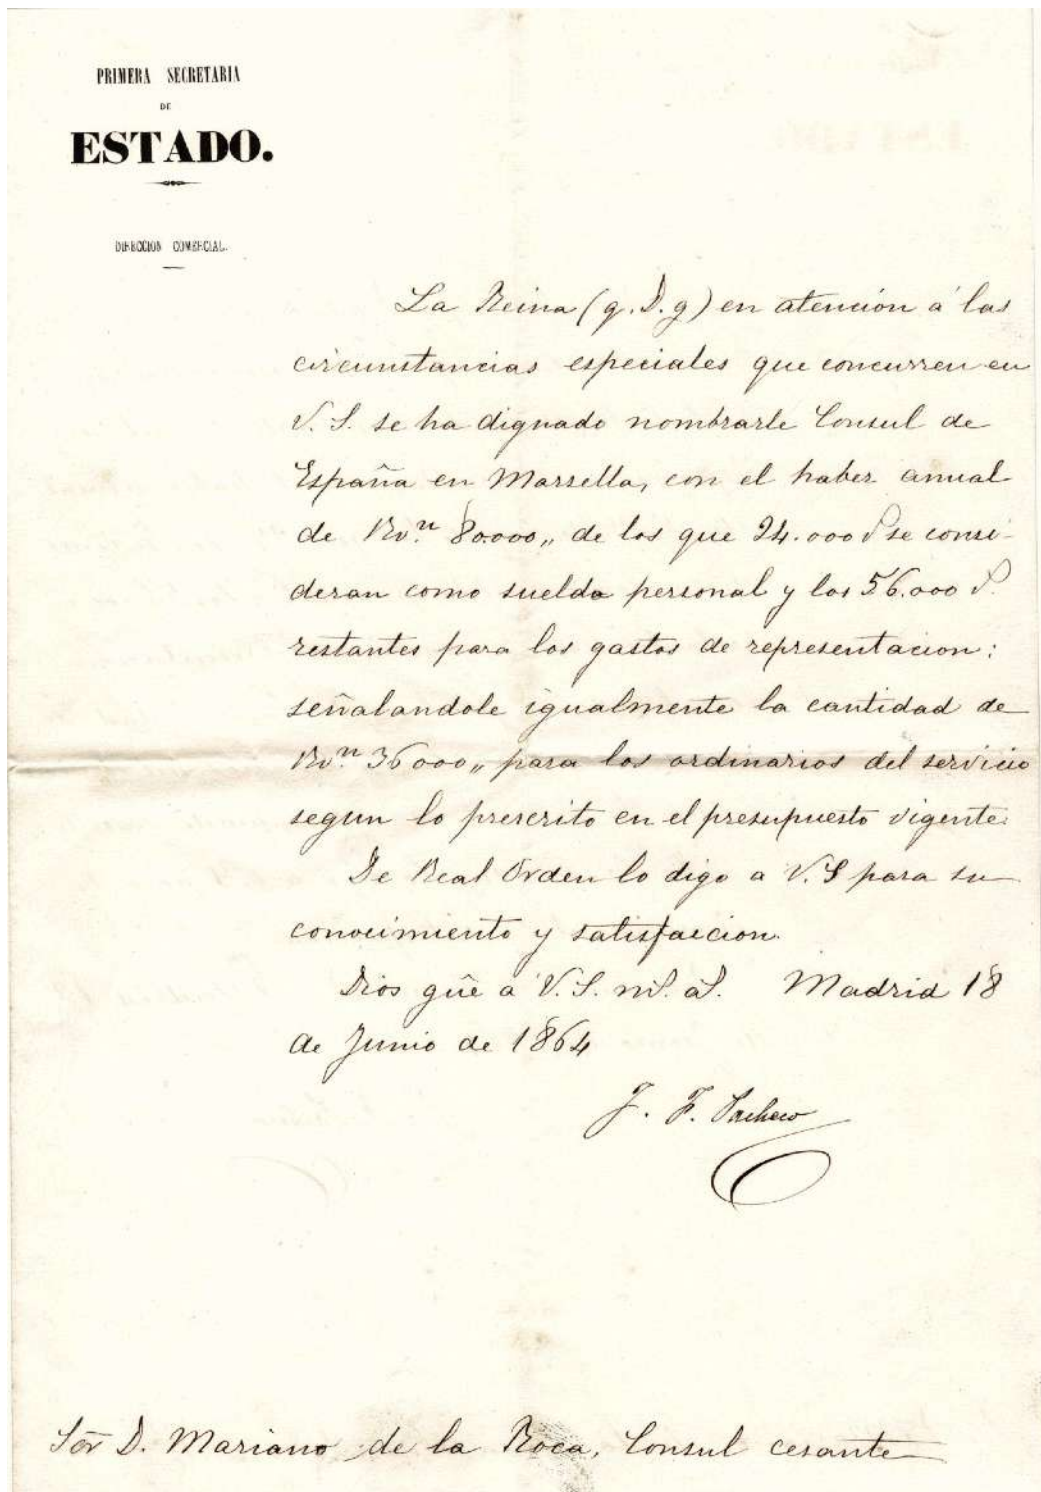 PRIMERA SECRETARIA
DE
ESTADO.
DIRECCION COMERCIAL.
La Reina (q. D. g) en atención á las
circunstancias especiales que concurren en
V. S. se ha dignado nombrarle Consul de
España en Marsella, con el haber anual
de Rv.n 80.000,, de los que 24.000 se consi-
deran como sueldo personal y los 56.000
restantes para los gastos de representacion:
señalandole igualmente la cantidad de
Rv.n 36000,, para los ordinarios del servicio
segun lo prescrito en el presupuesto vigente.
De Real Orden lo digo a V. S para su
conocimiento y satisfaccion.
Dios gûe á V. S. m.s a.s Madrid 18
de Junio de 1864
J. F. Pacheco
Sor D. Mariano de la Roca, Consul cesante